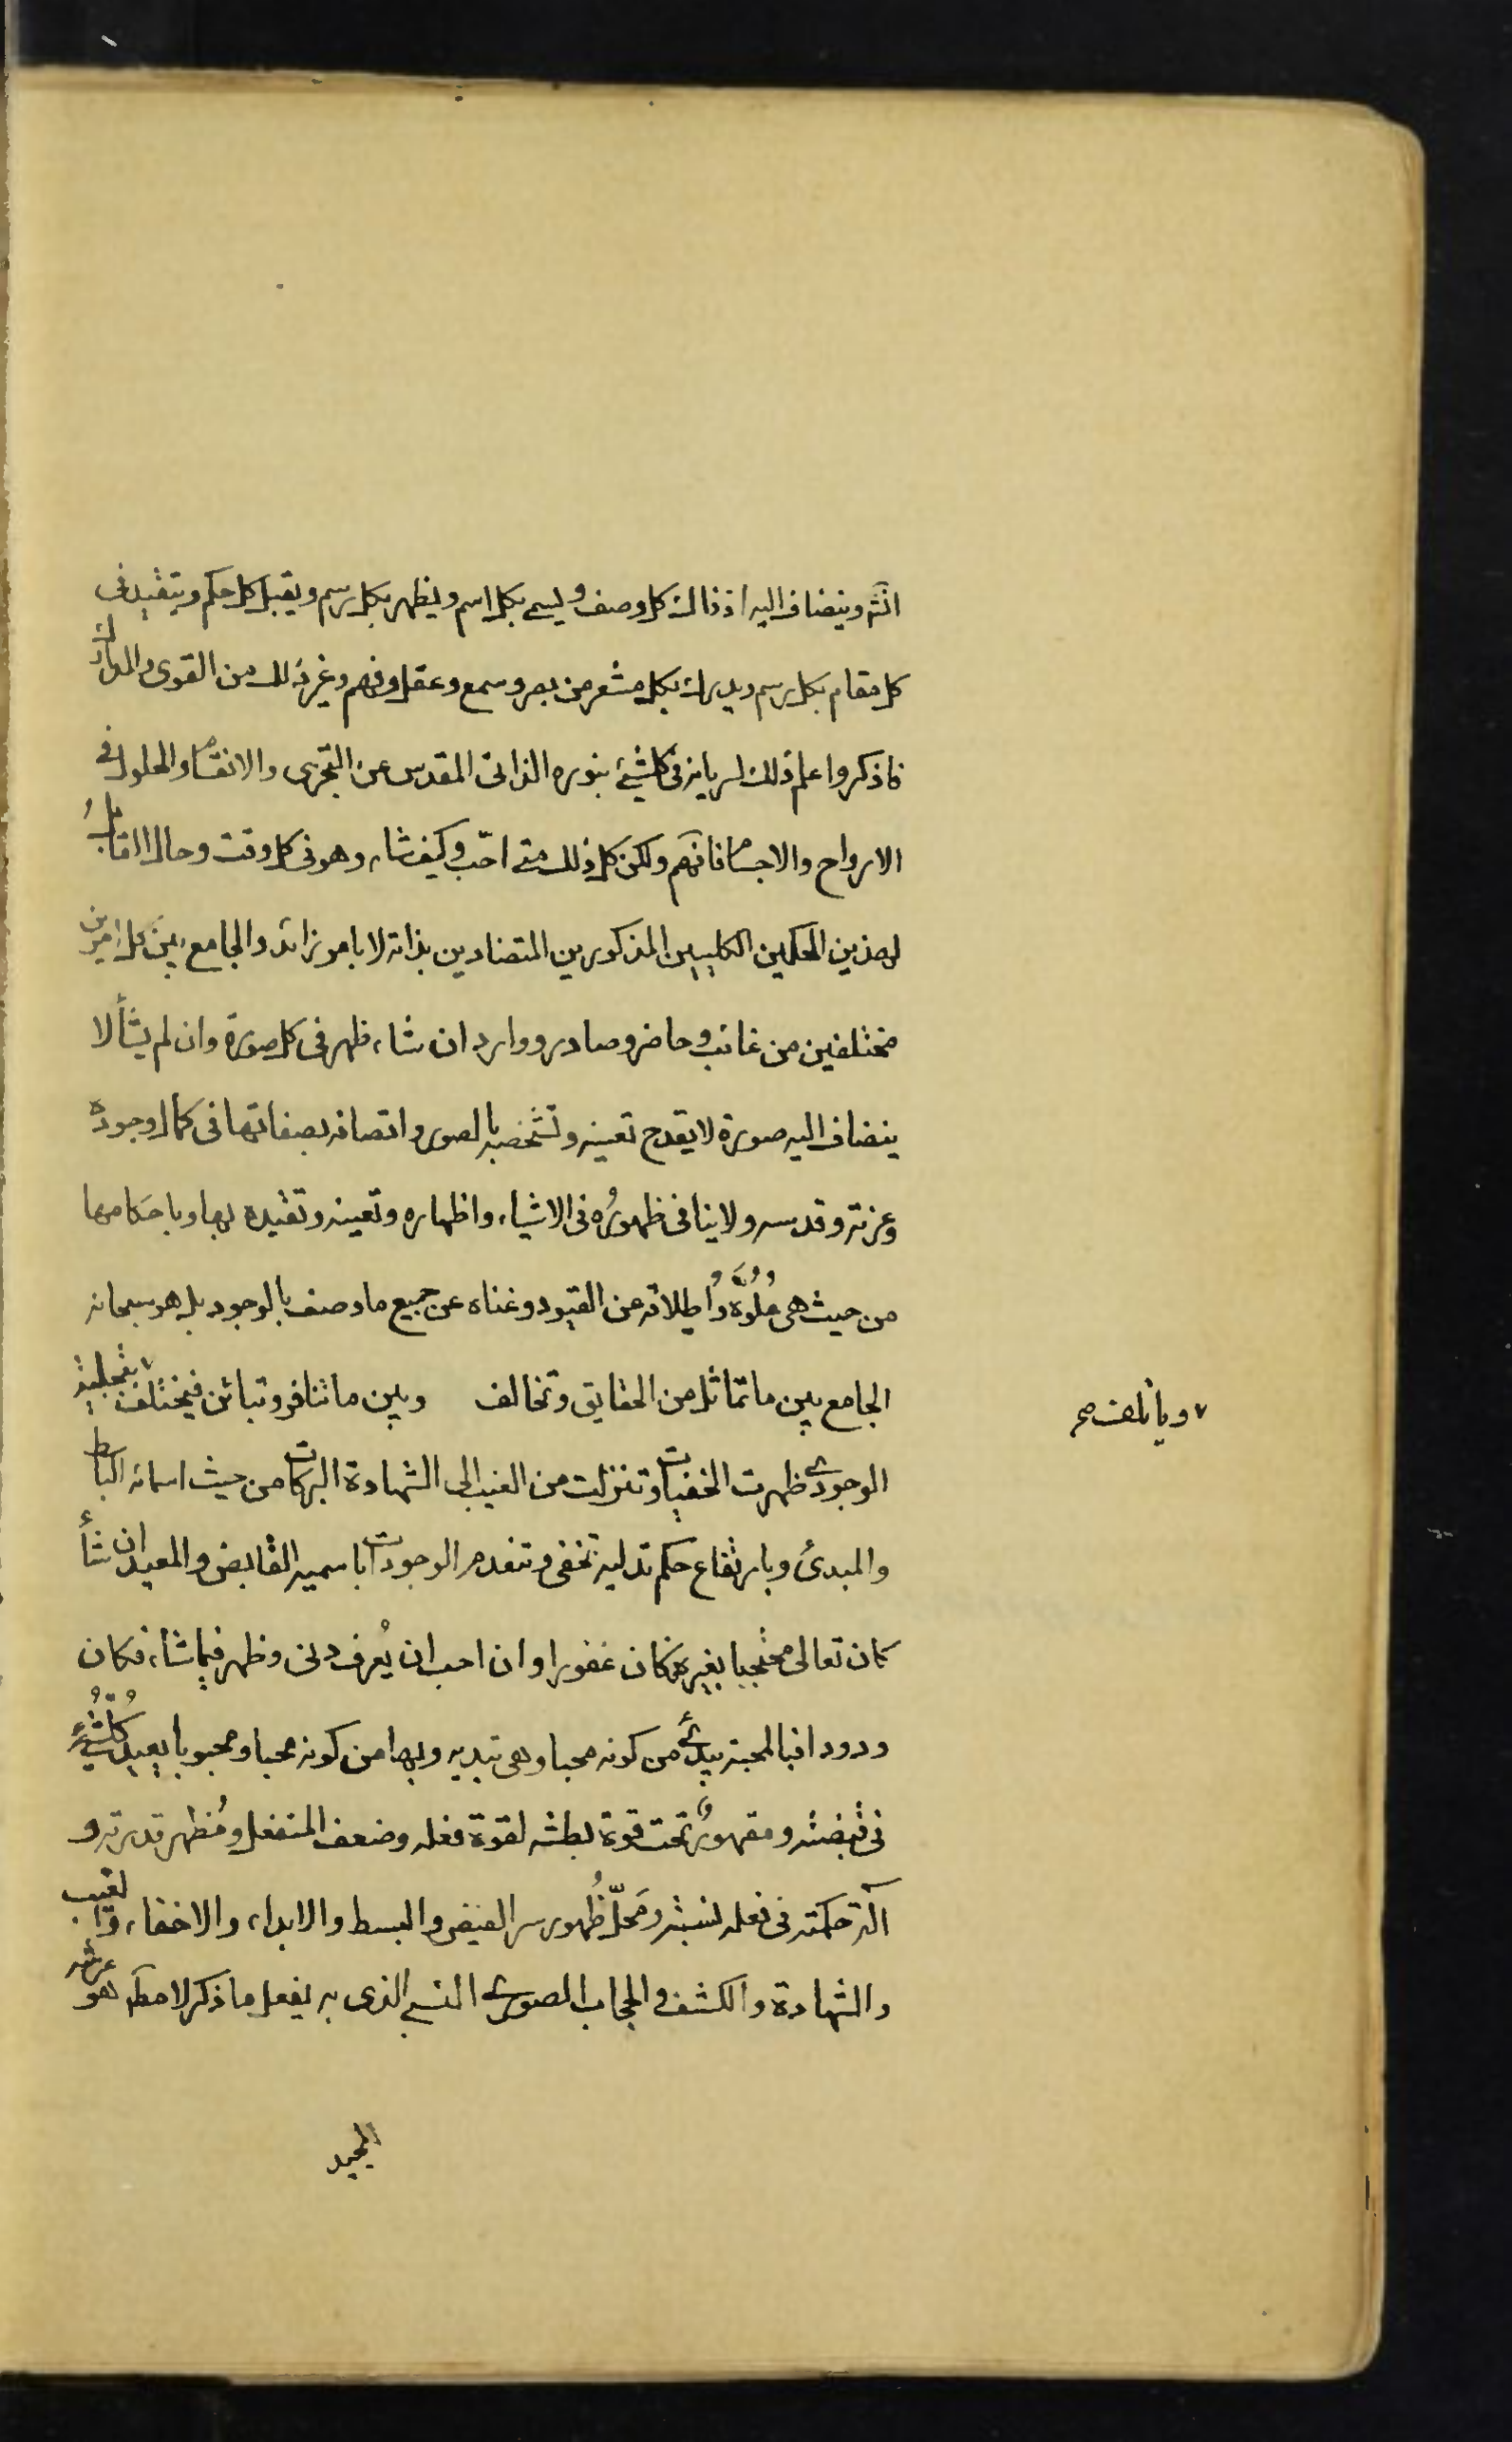 انَّه وينضاف اليه اذ ذاك كل وصف ويسمى بكل اسم ويظهر بكل رسم ويقبل كل حكم ويتقيد في
كل مقام بكل رسم ويدرك بكل مشعر من بصر وسمع وعقل وفهم وغير ذلك من القوى والمدارك
فاذكر واعلم ذلك لسريانه في كل شيئ بنوره الذاتى المقدس عن التجزى والانقسام والحلول في
الارواح والاجسام فافهم ولكن كل ذلك متى احبّ وكيف شاء وهو في كل وقت وحال القابلُ
لهذين الحكمين الكليين المذكورين المتضادين بذاته لا بامر زائد والجامع بين كل امرين
مختلفين من غائب وحاضر وصادر ووارد ان شاء ظهر في كل صورة وان لم يشأ لا
ينضاف اليه صورة لا يقدح تعينه وتشخصه بالصور واتصافه بصفاتها في كمال وجوده
وعزته وقدسه ولا ينافى ظهورُه في الاشياء واظهاره وتعينه وتقيده بها وباحكامها
من حيث هى عُلُوَّه واطلاقه عن القيود وغناه عن جميع ما وصف بالوجود بل هو سبحانه
الجامع بين ما تماثل من الحقايق وتخالف وبين ما تنافر وتباين فيختلف بتجليه
ويأتلف صح
الوجودى ظهرت الخفيات وتنزلت من الغيب الى الشهادة البركات من حيث اسمائه الباسط
والمبدئ وبارتفاع حكم تدليه تخفى وتنعدم الوجودات باسميه القابض والمعيد ان شأ
كان تعالى محتجبا بغيره فكان غفورا وان احب ان يُعرف دنى وظهر فيما شاء فكان
ودودا فبالمحبة يبدئ من كونه محبا وهى تبديه وبها من كونه محبا ومحبوبا يعيد كُلُّ شيئٍ
في قبضته ومقهورٌ تحت قوة بطشه لقوة فعله وضعف المنفعل ومُظهر قدرته و
آلة حكمته في فعله لسنته ومَحلّ ظُهور سر القبض والبسط والابداء والاخفاء والغيب
والشهادة والكشف والحجاب الصورى النسبى الذى به يفعل ما ذكر لا مطلقا هو عرشه
المجيد